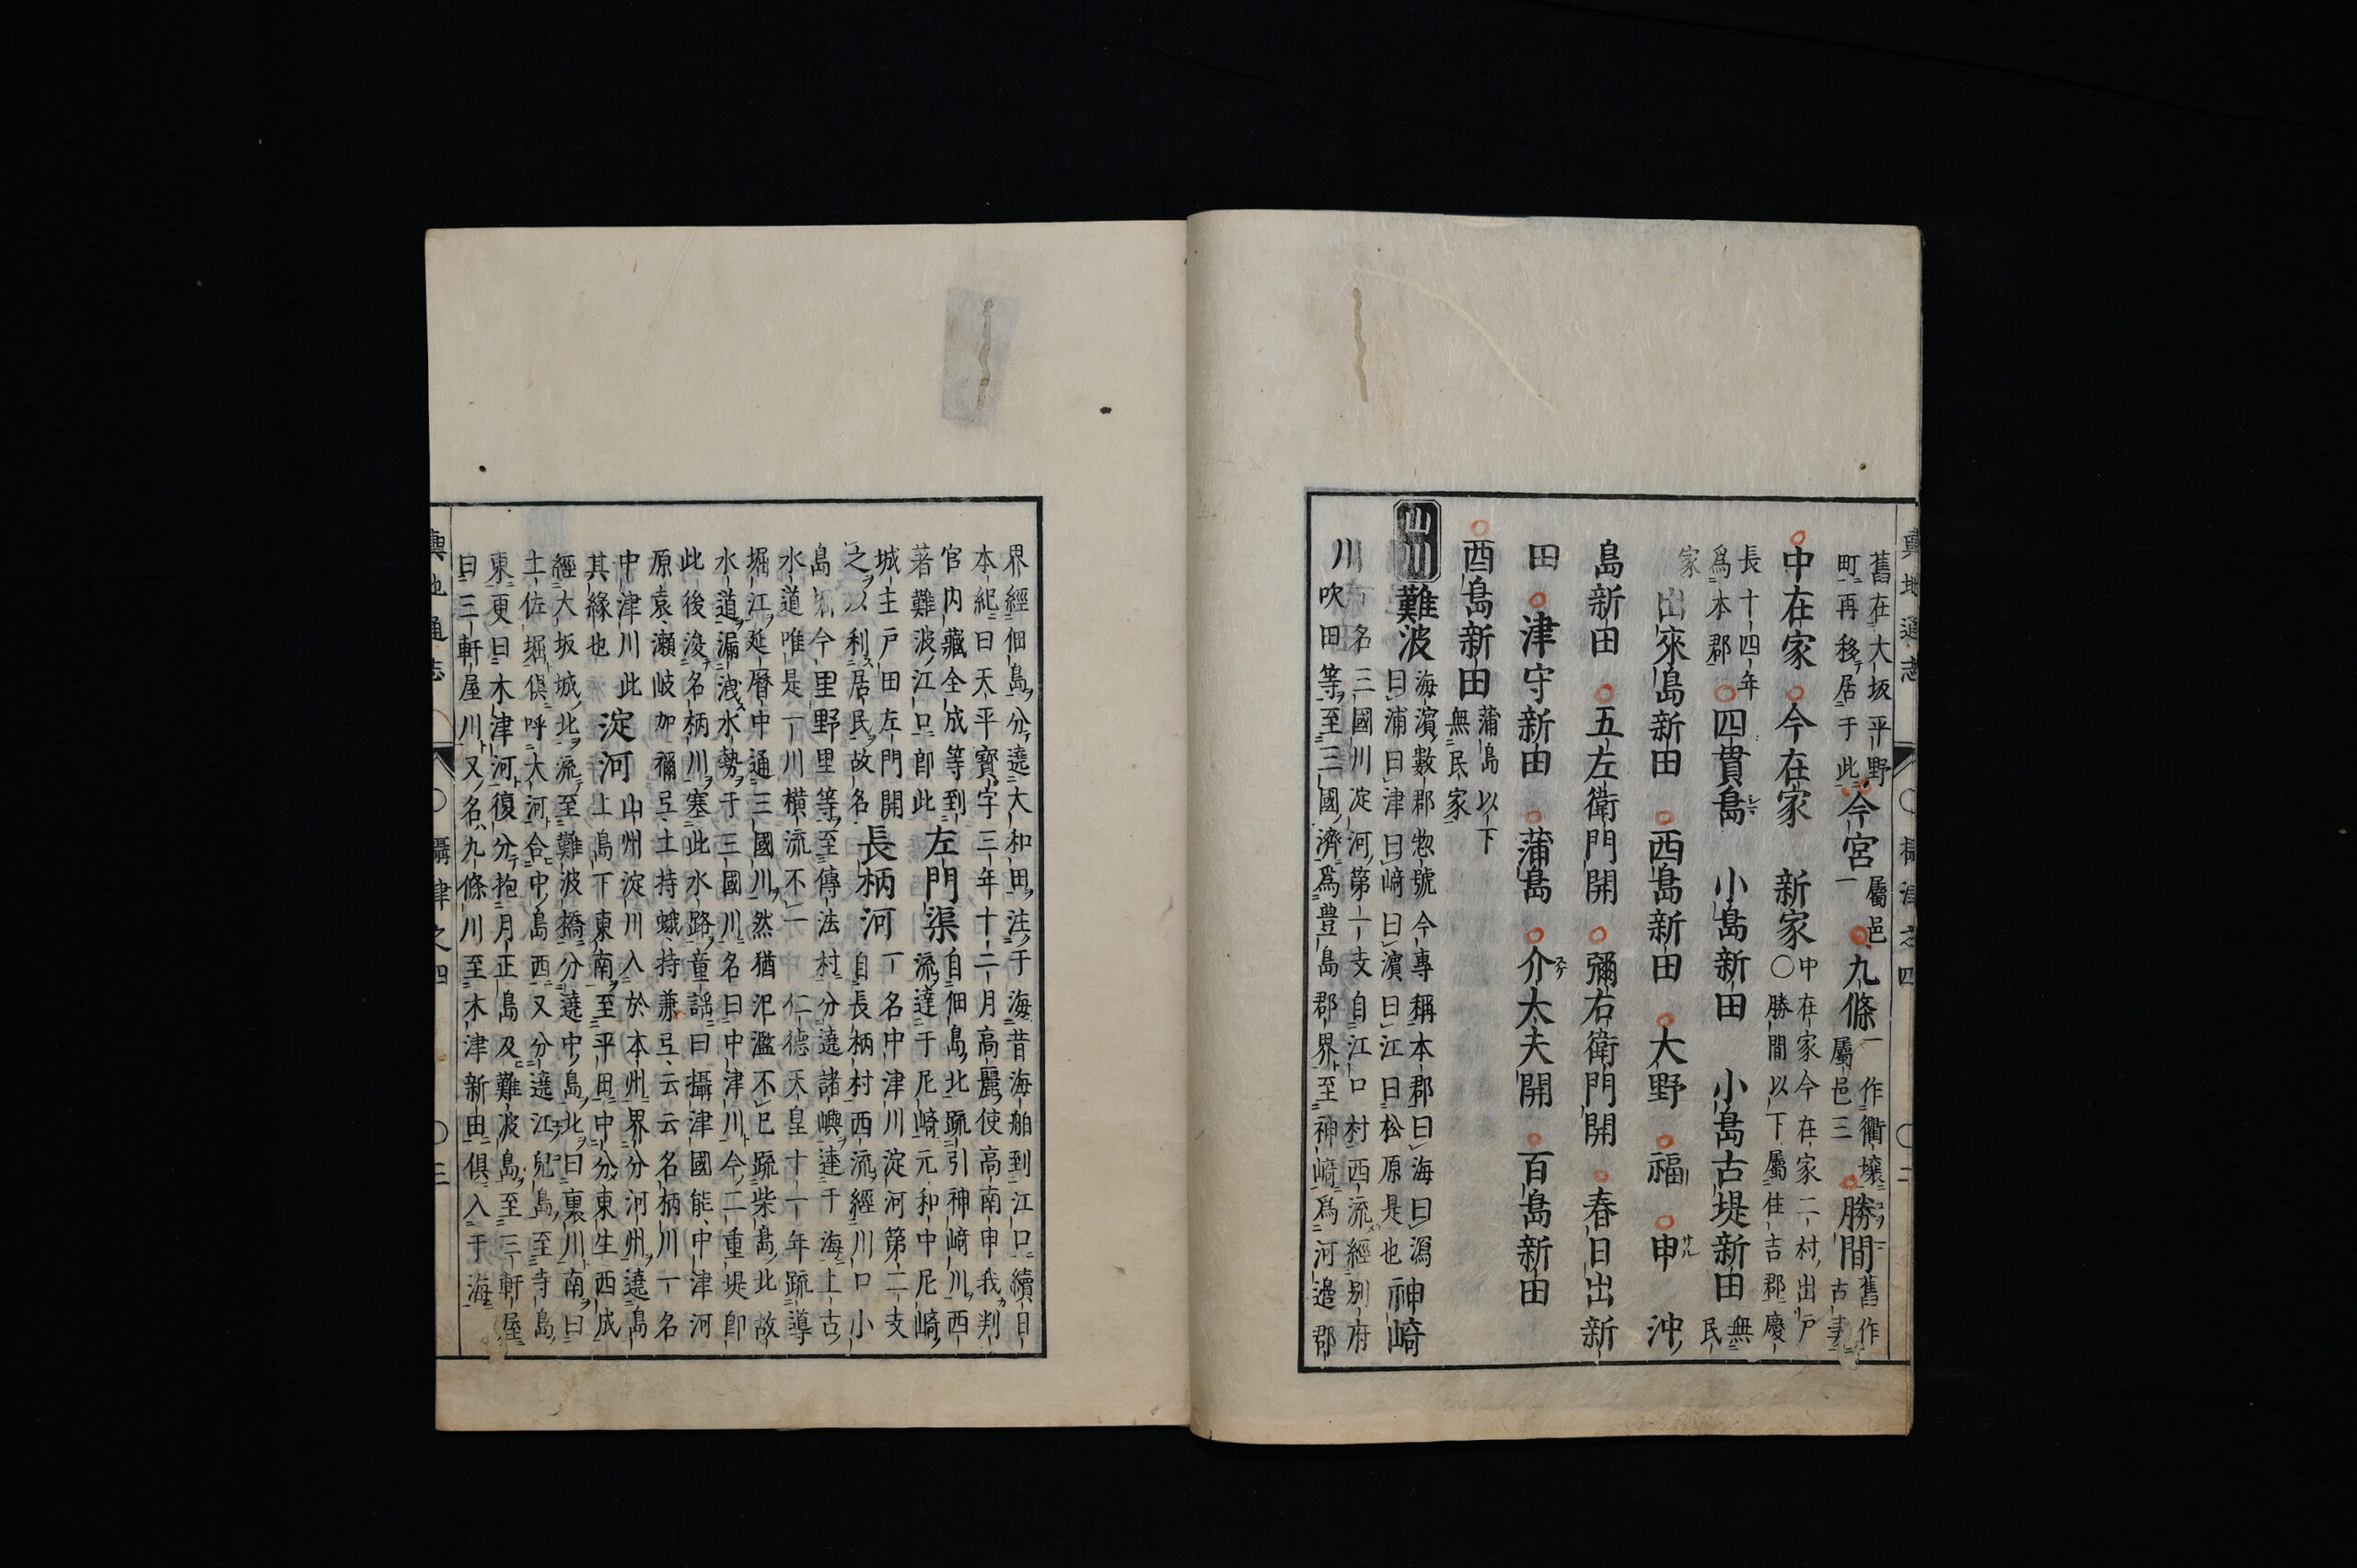 輿地通志 ○攝津之四 ○二
舊在大坂平野
町再移居于此 今宮 屬邑一 九條 一作衢壤 屬邑三 勝間 舊作古妻
中在家 今在家 新家 ○中在家今在家二村出戸
勝間以下屬住吉郡慶
長十四年
爲本郡 四貫島 小島新田 小島古堤新田 無民
家 出來島新田 西島新田 大野 福 申 沖
島新田 五左衛門開 彌右衛門開 春日出新
田 津守新田 蒲島 介太夫開 百島新田
酉島新田 蒲島以下
無民家
山川 難波 海濱數郡惣號今專稱本郡曰海曰潟
曰浦曰津曰﨑曰濱曰江曰松原是也 神﨑
川 一名三國川淀河第一支自江口村西流經別府
吹田等至三國濟爲豊島郡界至神﨑爲河邊郡
界經佃島分遶大和田注于海昔海舶到江口續日
本紀曰天平寶字三年十二月高麗使高南申我判
官内藏全成等到
著難波江口卽此 左門渠 自佃島北疏引神﨑川西
流達于尼﨑元和中尼﨑
城主戸田左門開
之以利居民故名 長柄河 一名中津川淀河第二支
自長柄村西流經川口小
島堀今里野里等至傳法村分遶諸嶼達于海上古
水道唯是一川橫流不一 仁德天皇十一年疏導
堀江延曆中通三國川然猶汜濫不已疏柴島北故
水道漏洩水勢于三國川名曰中津川今二重堤卽
此後浚名柄川塞此水路童謡曰攝津國能中津河
原袁瀬岐加禰弖土持蛾持兼弖云云名柄川一名
中津川此
其緣也 淀河 山州淀川入於本州界分河州遶島
上島下東南至平田中分東生西成
經大坂城北流至難波橋分遶中島北曰裏川南曰
土佐堀俱呼大河合中島西又分遶江兒島至寺島
東更曰木津河復分抱月正島及難波島至三軒屋
曰三軒屋川又名九條川至木津新田俱入于海
輿地通志 ○攝津之四 ○三